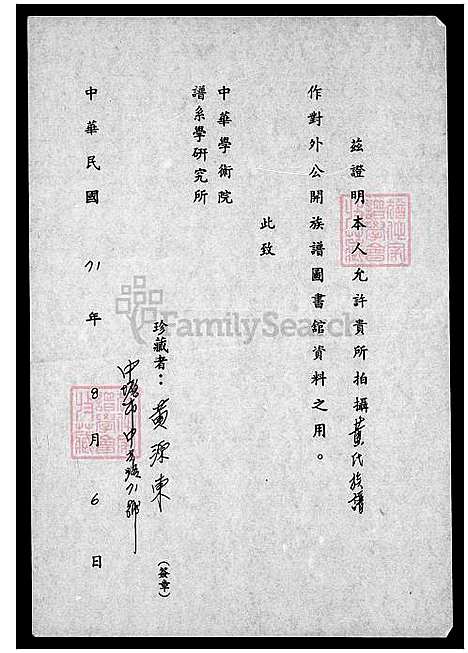 茲證明本人允許貴所拍攝黃氏族譜
作對外公開族譜圖書館資料之用。
此致
中華學術院
譜系學研究所
珍藏者：黃源東
(簽章)
中華民國71年8月6日
FamilySearch